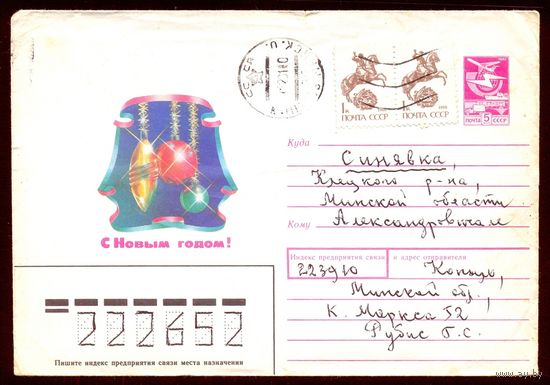 1к ПОЧТА СССР
1к ПОЧТА СССР
ПОЧТА 5 СССР
Куда
Синявка,
Клецкого р-на,
Минской области
Кому Александровичам
С Новым годом!
Индекс предприятия связи и адрес отправителя
223910 Копыль,
Минской обл.,
К. Маркса 52
Рубис Г.С.
222652
Пишите индекс предприятия связи места назначения